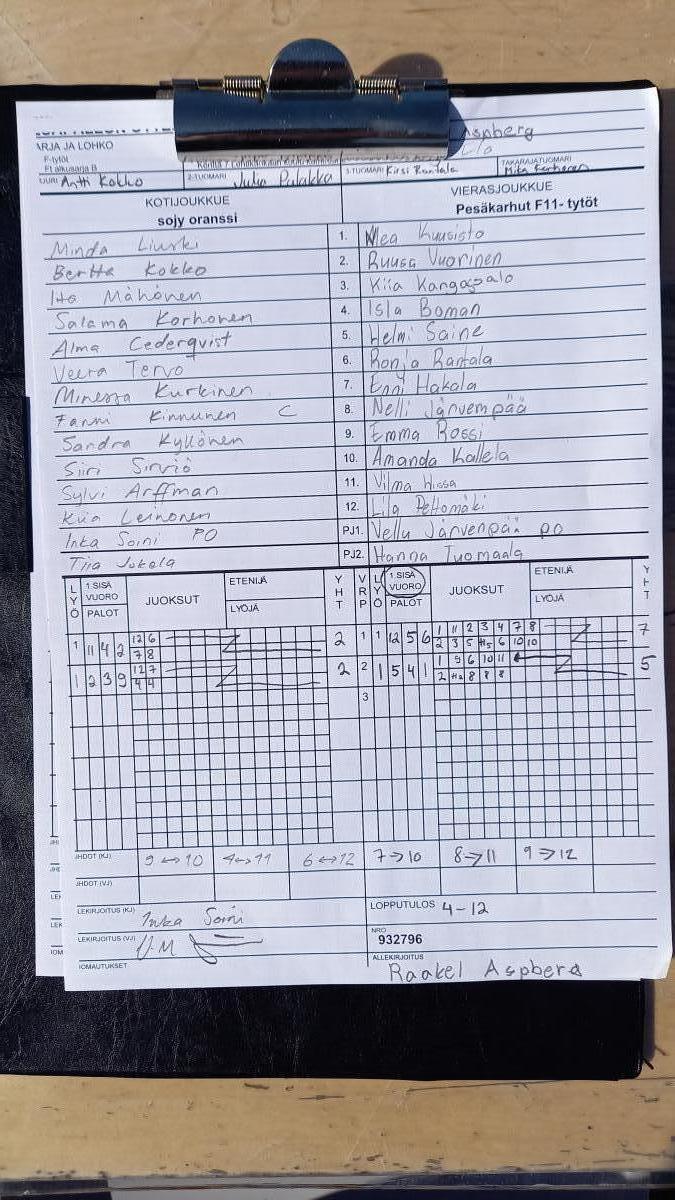 Aspberg
ARJA JA LOHKO
F-tytöt
F1 alkusarja B
Antti Kokko 2-TUOMARI Juha Pulakka 3-TUOMARI Kirsi Rantala TAKARAJATUOMARI Mika Korhonen
KOTIJOUKKUE VIERASJOUKKUE
sojy oranssi Pesäkarhut F11- tytöt
Minda Liuski 1. Mea Kuusisto
Bertta Kokko 2. Ruusa Vuorinen
Ita Mähönen 3. Kiia Kangassalo
Salama Korhonen 4. Isla Boman
Alma Cederqvist 5. Helmi Saine
Veera Tervo 6. Ronja Rantala
Minessa Kurkinen 7. Enni Hakala
Fanni Kinnunen C 8. Nelli Järvempää
Sandra Kyllönen 9. Emma Rossi
Siiri Sirviö 10. Amanda Kallela
Sylvi Arffman 11. Vilma Hissa
Kiia Leinonen 12. Lila Peltomäki
Inka Soini PO PJ1. Vellu Järvenpää PO
Tiia Jokela PJ2. Hanna Tuomaala
LYÖ 1.SISÄ VUORO PALOT JUOKSUT ETENIJÄ LYÖJÄ YHT VRP LYÖ 1.SISÄ VUORO PALOT JUOKSUT ETENIJÄ LYÖJÄ YHT
1 11 4 2 12 6 2 1 1 12 5 6 1 11 2 3 4 7 8 7
7 8 2 3 5 6 10 10
1 2 3 9 12 7 2 2 1 5 4 1 1 5 6 10 11 5
4 4 2 8 8 8
3
JHDOT (KJ) 9 ↔ 10 4 ↔ 11 6 ↔ 12 7 → 10 8 → 11 9 → 12
JHDOT (VJ)
LEKIRJOITUS (KJ) Inka Soini LOPPUTULOS 4-12
LEKIRJOITUS (VJ) NRO
932796
IOMAUTUKSET ALLEKIRJOITUS
Raakel Aspberg